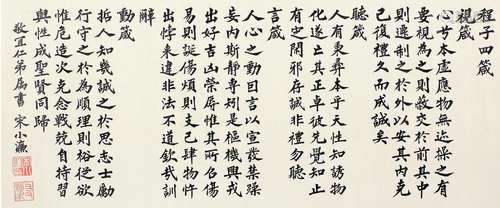 程子四箴
視箴
心兮本虛應物無迹操之有
要視為之則蔽交於前其中
則遷制之於外以安其內克
己復禮久而成誠矣
聽箴
人有秉彝本乎天性知誘物
化遂亡其正卓彼先覺知止
有定閑邪存誠非禮勿聽
言箴
人心之動因言以宣發禁躁
妄內斯靜專矧是樞機興戎
出好吉凶榮辱惟其所召傷
易則誕傷煩則支己肆物忤
出悖來違非法不道欽哉訓
辭
動箴
哲人知幾誠之於思志士勵
行守之於為順理則裕從欲
惟危造次克念戰兢自持習
與性成聖賢同歸
敬宜仁弟屬書 宋小濂